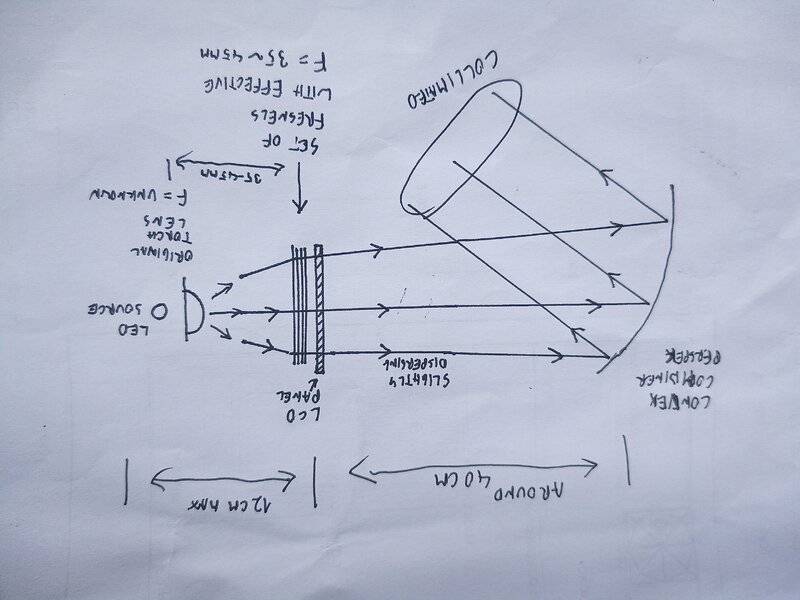 AROUND 40CM
12CM MAX
LCD
PANEL
CONVEX
COMBINER
PERSPEX
SLIGHTLY
DISPERSING
LED
SOURCE
ORIGINAL
TORCH
LENS
F = UNKNOWN
35-45MM
SET OF
FRESNELS
WITH EFFECTIVE
F = 35~45MM
COLLIMATED